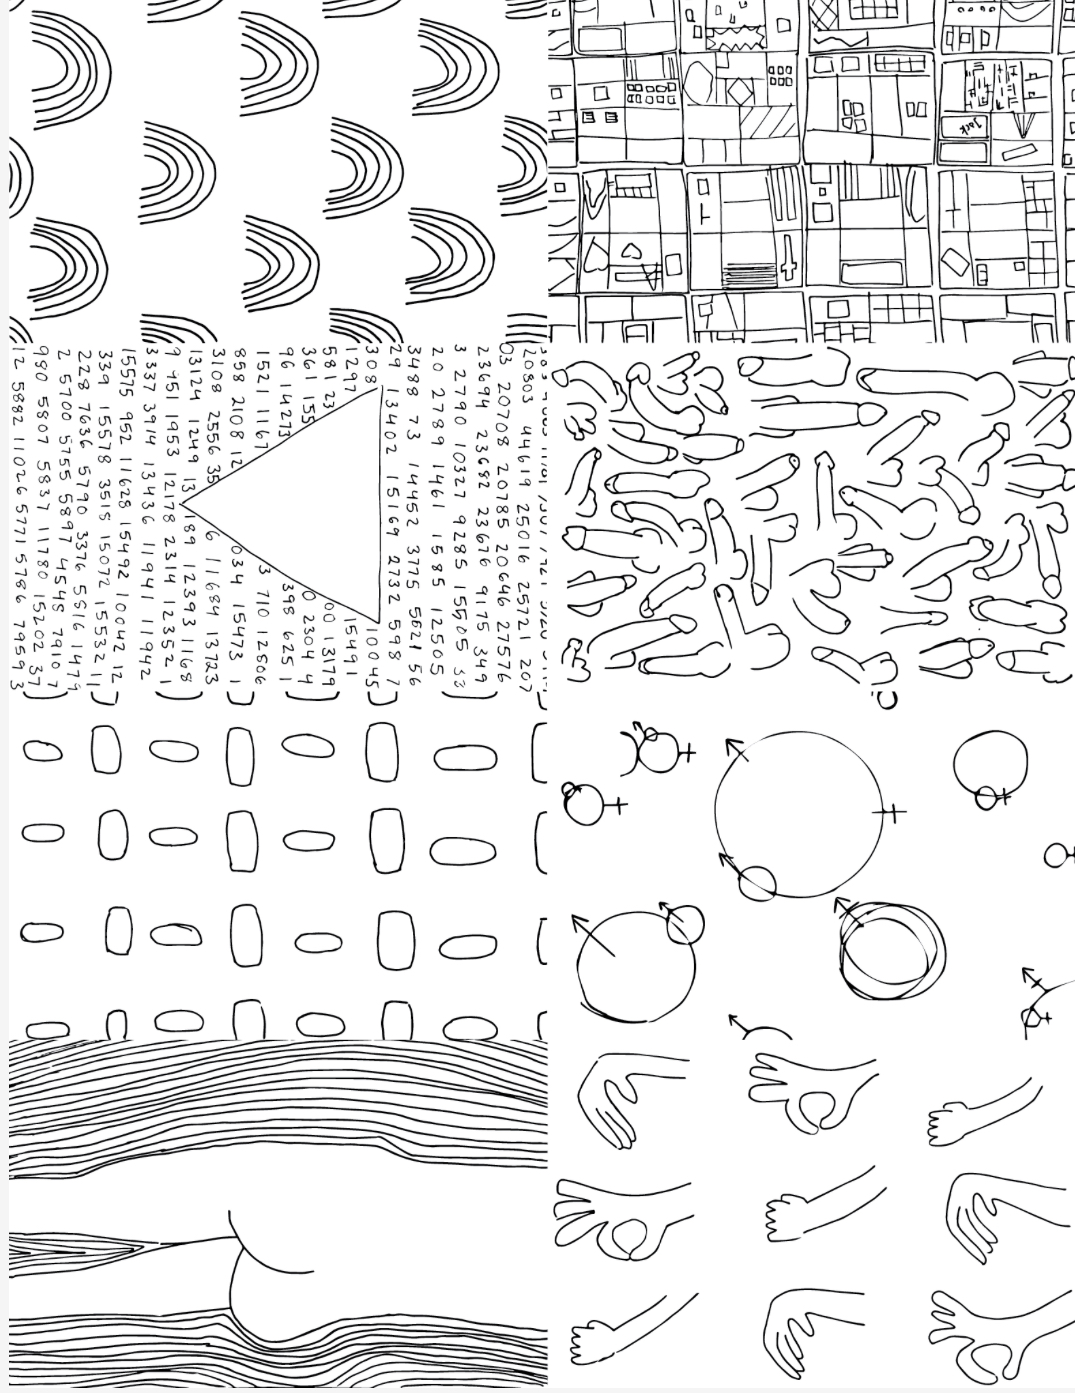 Jack
20803 44619 25016 25721 207
03 20708 20785 20646 27576
23694 23682 23676 9175 349
3 2790 10327 9285 15505 33
20 2789 1461 1585 12505
3488 73 14452 3775 5621 56
29 13402 15169 2732 598 7
308 10045
1297 15491
581 23 00 13179
361 155 0 2304 4
96 14273 398 625 1
1521 1167 3 710 12506
858 2108 12 034 15473 1
3108 2556 35 6 11684 13723
13124 1249 13 189 12393 1168
9 951 1953 12178 2314 12352 1
3337 3914 13436 11941 11942
15575 952 11628 15492 10042 12
339 15578 3518 15072 15532 11
228 7636 5790 3376 5816 1479
2 5700 5755 5897 4548 7910 7
980 5807 5837 11780 15202 37
12 5882 11026 5771 5786 7959 3